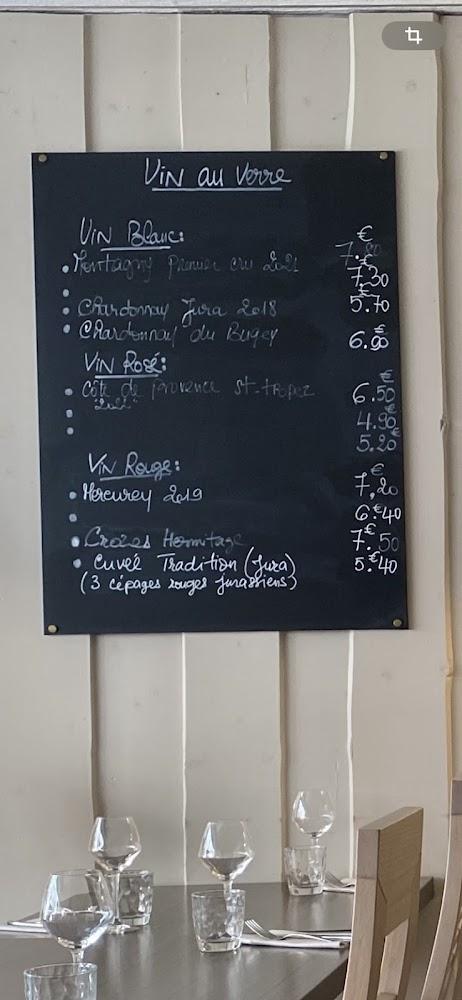 Vin au Verre
Vin Blanc: €
• Montagny premier cru 2021 7.80
• 7.30 €
• Chardonnay Jura 2018 5.70 €
• Chardonnay du Bugey 6.90 €
Vin Rosé:
• Côte de provence St-tropez 6.50 €
• "2022" 4.90 €
• 5.20 €
Vin Rouge: €
• Mercurey 2019 7,20
• 6.€40
• Crozes Hermitage 7.€50
• Cuvée Tradition (Jura) 5.€40
(3 cépages rouges Jurassiens)